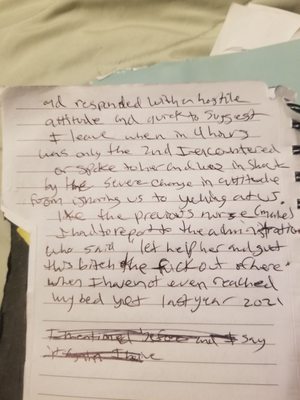 and responded with a hostile
attitude and quick to suggest
I leave when in 4 hours
was only the 2nd I encountered
or spoke to her and was in shock
by the severe change in attitude
from ignoring us to yelling at us.
like the previous nurse (male)
I had to report to the administration
who said let help her and get
this bitch the fuck out of here
when I have not even reached
my bed yet last year 2021
I mentioned before and I say
it again I have